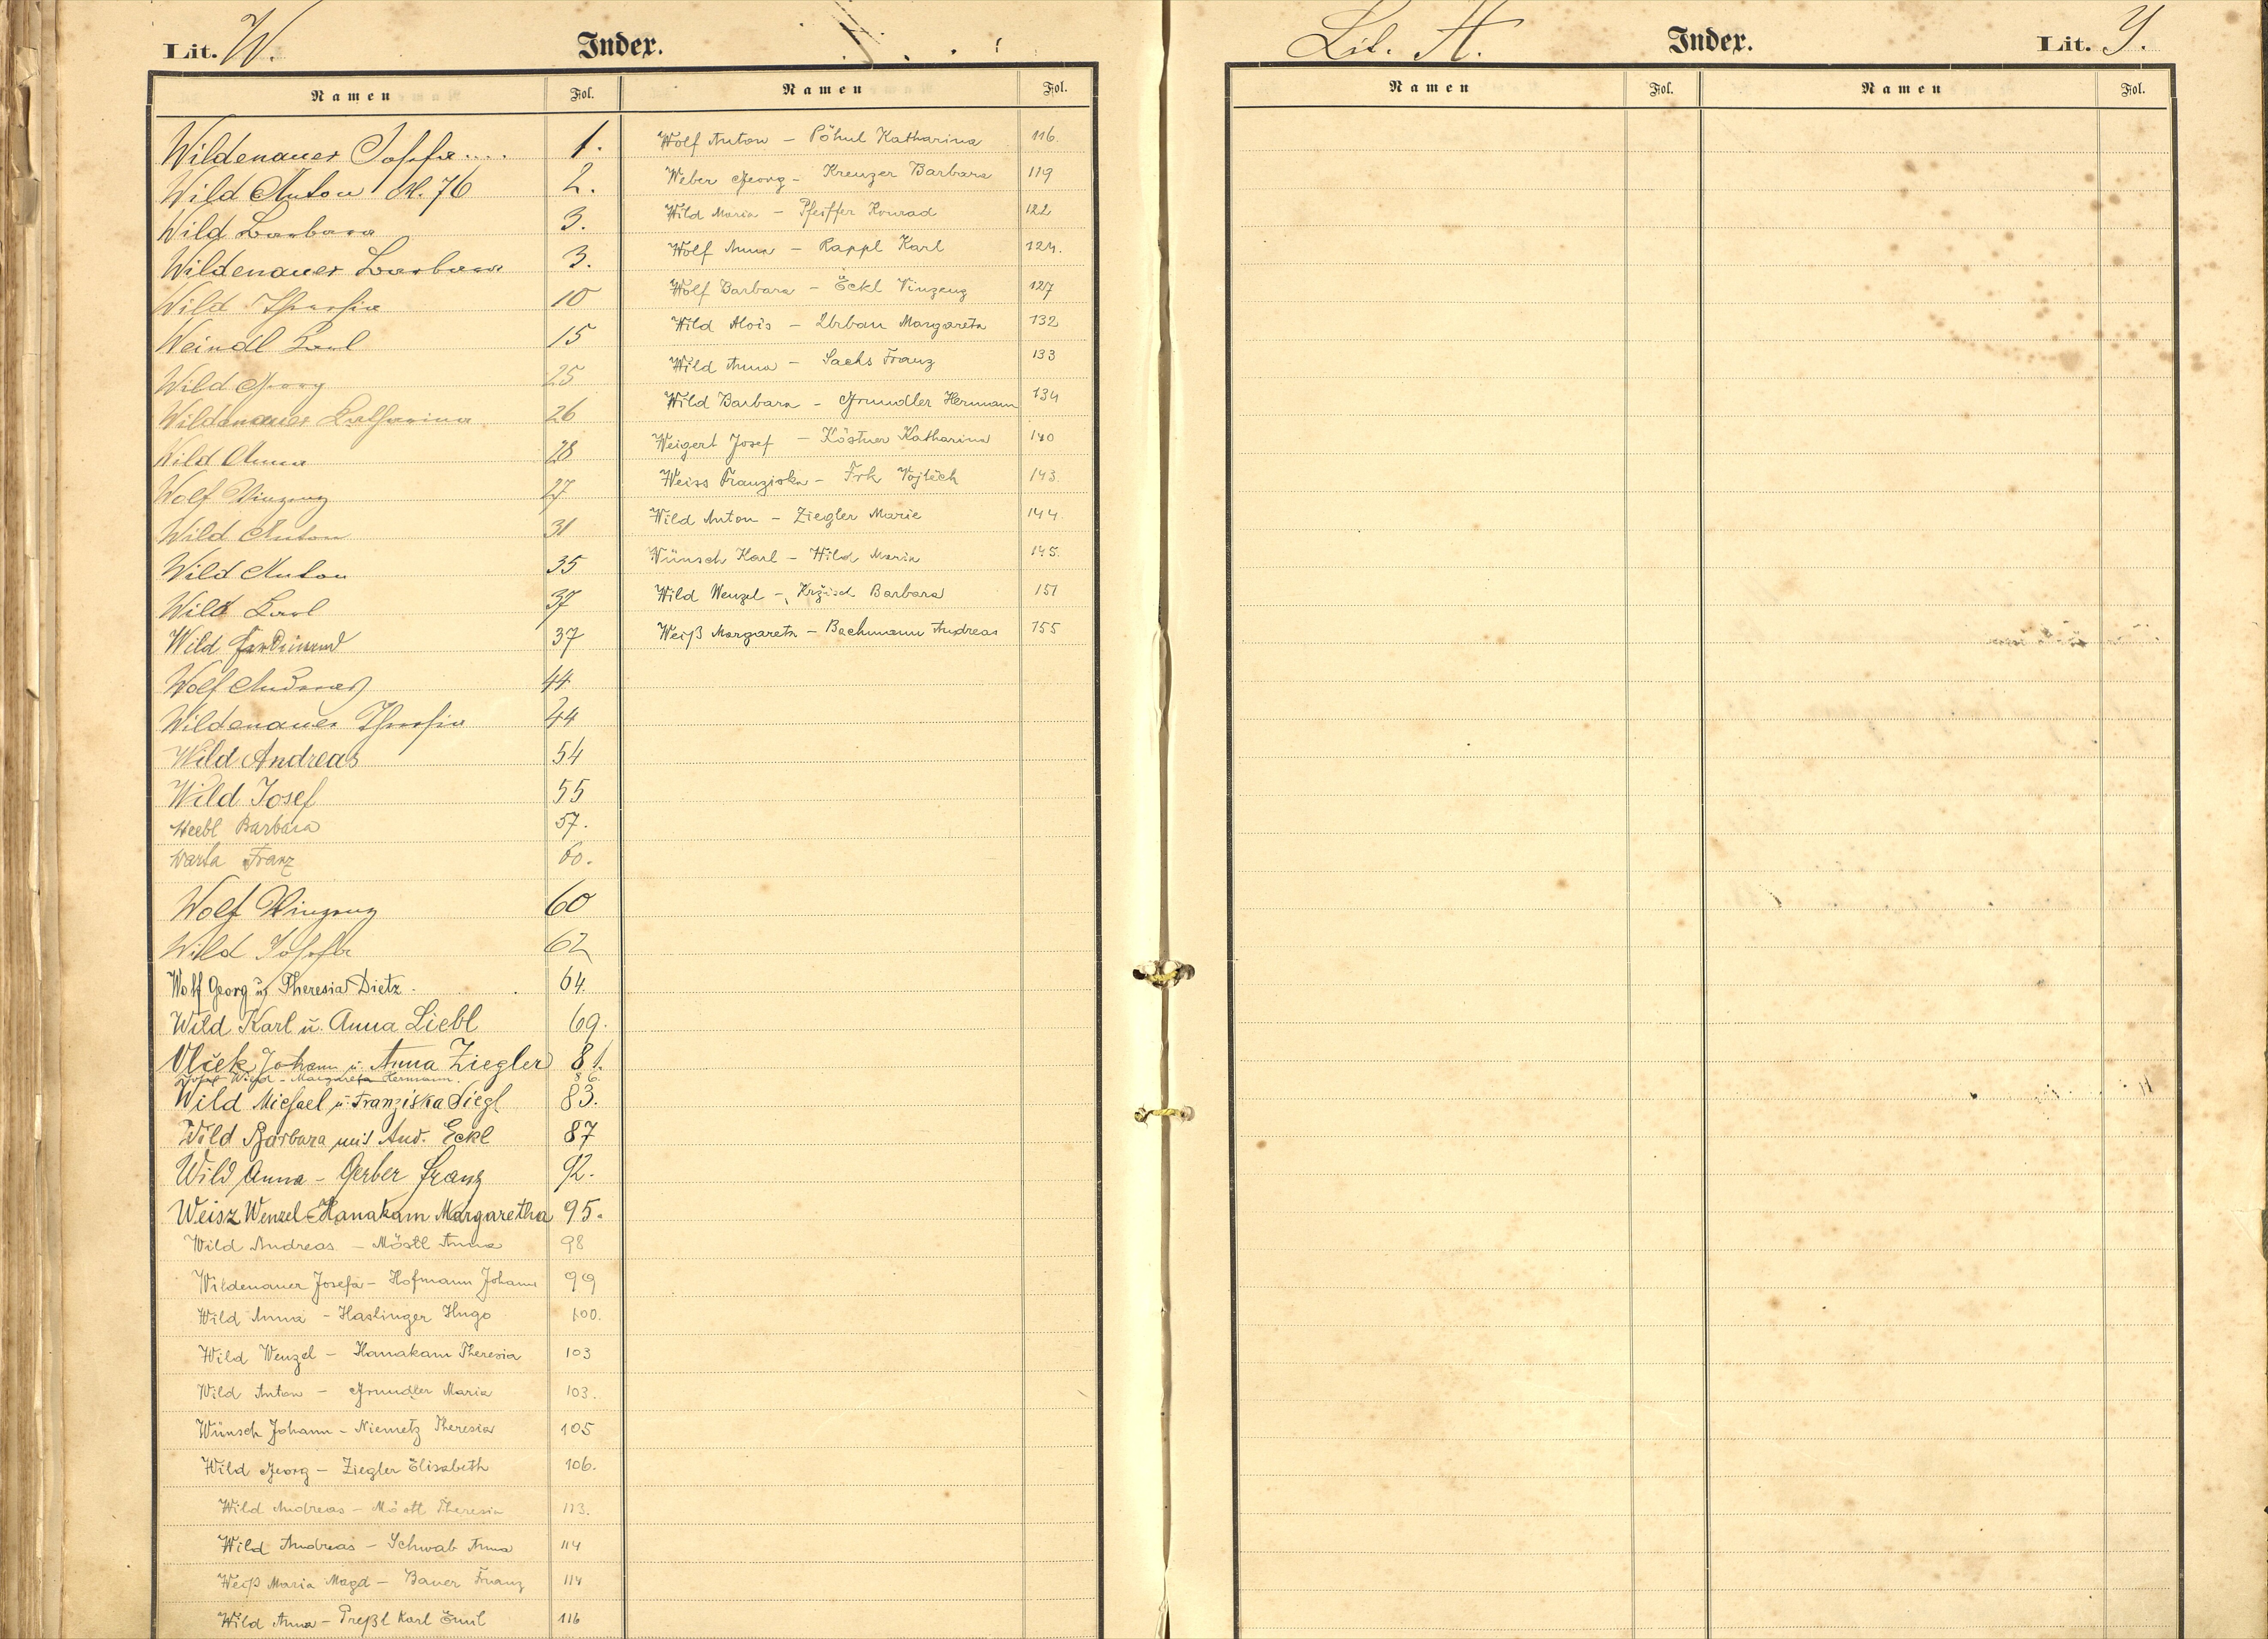 Lit. W. Index.
Namen Fol. Namen Fol.
Wildenauer Josefa.... 1.
Wild Anton N. 76 2.
Wild Barbara 3.
Wildenauer Barbara 3.
Wild Theresia 10
Weindl Karl 15
Wild Georg 25
Wildenauer Katharina 26
Wild Anna 28
Wolf Vinzenz 27
Wild Anton 31
Wild Anton 35
Wild Karl 37
Wild Ferdinand 37
Wolf Andreas 44
Wildenauer Theresia 44
Wild Andreas 54
Wild Josef 55
Weebl Barbara 57.
Warta Franz 60.
Wolf Vinzenz 60
Wild Josefa 62
Wolf Georg u Theresia Dietz. 64.
Wild Karl u. Anna Liebl 69.
Vlček Johann u. Anna Ziegler 81.
Josef Wild - Margareta Hermann. 86.
Wild Michael u. Franziska Siegl 83.
Wild Barbara mit And. Eckl 87
Wild Anna - Gerber Franz 92.
Weisz Wenzel - Hanakam Margaretha 95.
Wild Andreas - Möstl Anna 98
Wildenauer Josefa - Hofmann Johann 99
Wild Anna - Haslinger Hugo 100.
Wild Wenzel - Hanakam Theresia 103
Wild Anton - Grundler Maria 103.
Wünsch Johann - Niemetz Theresia 105
Wild Georg - Ziegler Elisabeth 106.
Wild Andreas - Möstl Theresia 113.
Wild Andreas - Schwab Anna 114
Weiß Maria Magd - Bauer Franz 114
Wild Anna - Preßl Karl Emil 116
Wolf Anton - Pöhnl Katharina 116.
Weber Georg - Kreuzer Barbara 119
Wild Maria - Pfeiffer Konrad 122
Wolf Anna - Rappl Karl 124.
Wolf Barbara - Eckl Vinzenz 127
Wild Alois - Urban Margareta 132
Wild Anna - Sachs Franz 133
Wild Barbara - Grundler Hermann 134
Weigert Josef - Köstner Katharina 140
Weiss Franziska - Frk Vojtěch 143.
Wild Anton - Ziegler Marie 144.
Wünsch Karl - Wild Maria 145.
Wild Wenzel - Barbara 151
Weiß Margareta - Bachmann Andreas 155
Lit. A. Index. Lit. Y.
Namen Fol. Namen Fol.